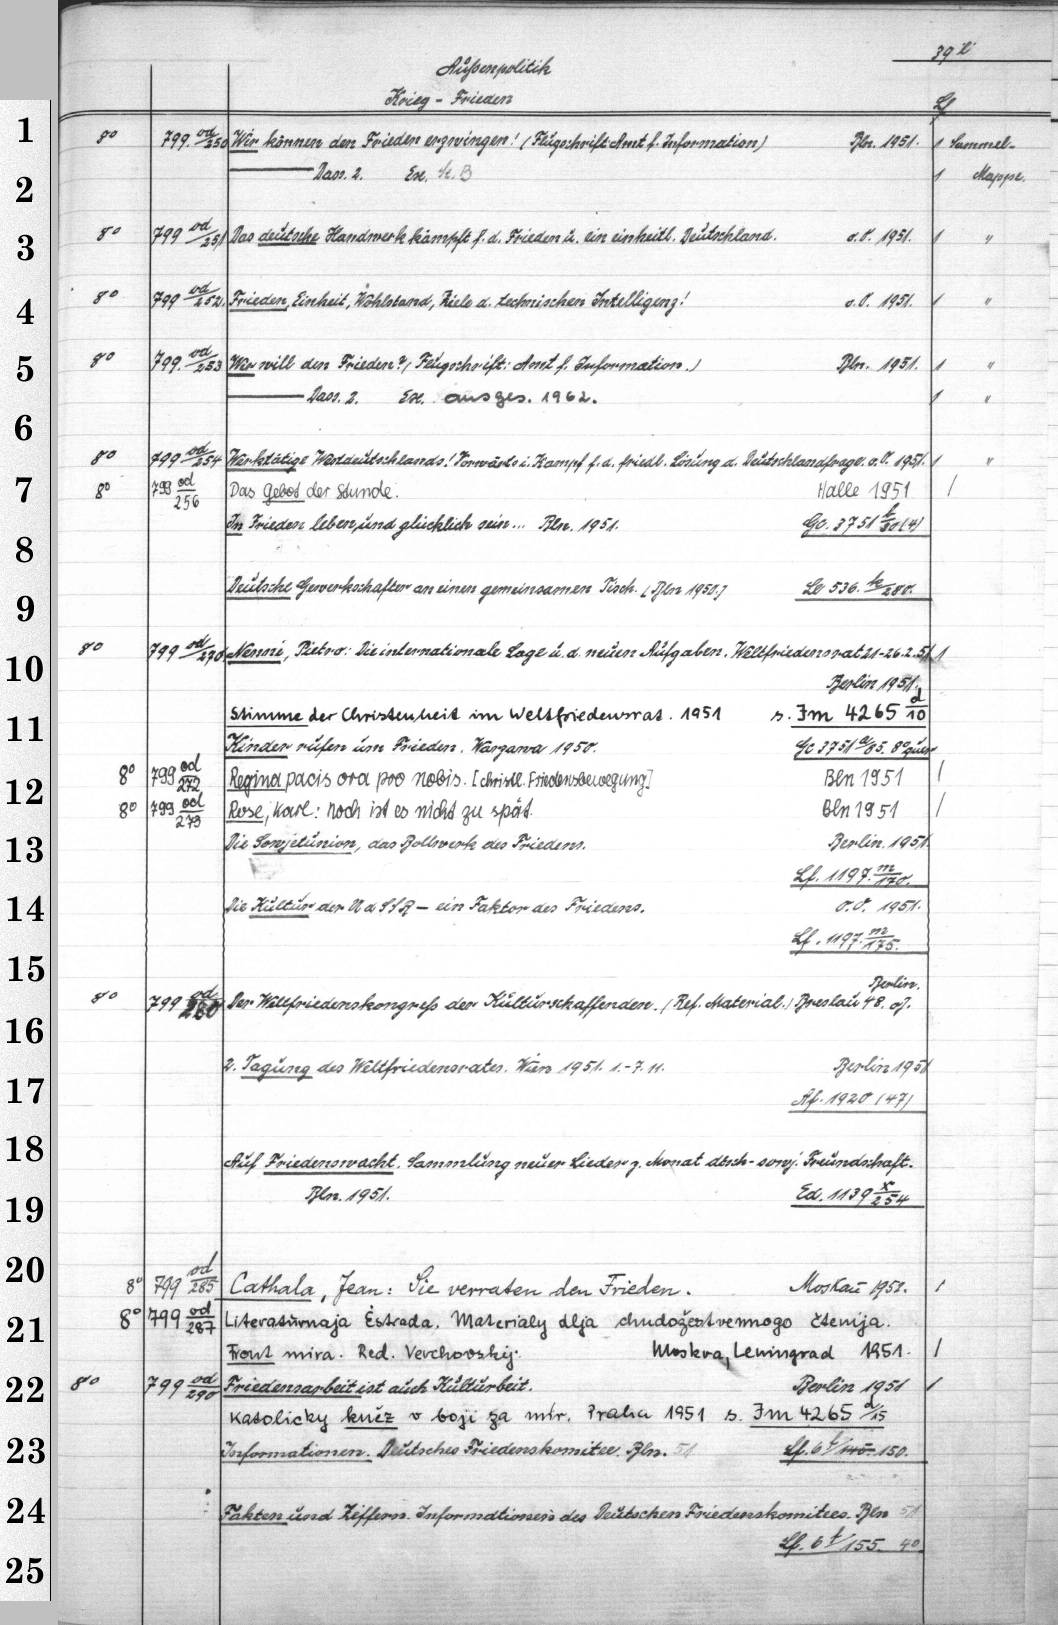 39 li
Außenpolitik
Krieg - Frieden
Lf
1
8° 799 od/250 Wir können den Frieden erzwingen! (Flugschrift Amt f. Information) Bln. 1951. 1 Sammel-
——— Dass. 2. Ex. 1 Mappe.
2
3 8° 799 od/251 Das deutsche Handwerk kämpft f. d. Frieden u. ein einheitl. Deutschland. o.O. 1951. 1 "
4 8° 799 od/252. Frieden, Einheit, Wohlstand, Ziele d. technischen Intelligenz! o.O. 1951. 1 "
5 8° 799. od/253 Wer will den Frieden? (Flugschrift: Amt f. Information.) Bln. 1951. 1 "
——— Dass. 2. Ex. ausges. 1962. 1 "
6
8° 799 od/254 Werktätige Westdeutschlands! Vorwärts i. Kampf f. d. friedl. Lösung d. Deutschlandfrage. o.O. 1951. 1 "
7 8° 799 od/256 Das Gebot der Stunde. Halle 1951 /
In Frieden leben, und glücklich sein... Bln. 1951. Gc. 3751 k/30 (4)
8
9 Deutsche Gewerkschafter an einen gemeinsamen Tisch. (Bln 1950.) Le 536. k/280.
10 8° 799 od/270 Nenni, Pietro: Die internationale Lage u. d. neuen Aufgaben. Weltfriedensrat 21-26.2.51 1
Berlin 1951.
11 Stimme der Christenheit im Weltfriedensrat. 1951 s. Im 4265 d/10
Kinder rufen um Frieden. Warzawa 1950. Gc 3751 a/85. 8° quer
12 8° 799 od/272 Regina pacis ora pro nobis. [christl. Friedensbewegung] Bln 1951 /
8° 799 od/273 Rose, Karl: Noch ist es nicht zu spät. Bln 1951 /
13 Die Sowjetunion, das Bollwerk des Friedens. Berlin. 1951.
Lf. 1197. m/170.
14 Die Kultur der UdSSR — ein Faktor des Friedens. o.O. 1951.
Lf. 1197. m/175.
15 Berlin.
8° 799 od/280 Der Weltfriedenskongreß der Kulturschaffenden. (Ref. Material.) Breslau 48. oJ.
16
17 2. Tagung des Weltfriedensrates. Wien 1951. 1.-7.11. Berlin 1951
Af. 1920 (47)
18 Auf Friedenswacht. Sammlung neuer Lieder z. Monat dtsch-sowj. Freundschaft.
19 Bln. 1951. Ed. 1139 x/254
20 8° 799 od/285 Cathala, Jean: Sie verraten den Frieden. Moskau 1951. 1
21 8° 799 od/287 Literaturnaja Èstrada. Materialy dlja chudožestvennogo čtenija.
Front mira. Red. Verchovskij. Moskva, Leningrad 1951. /
22 8° 799 od/290 Friedensarbeit ist auch Kulturbeit. Berlin 1951 1
Katolicky kněz v boji za mír. Praha 1951 s. Im 4265 d/15
23 Informationen. Deutsches Friedenskomitee. Bln. 51 Lf. 6 t/145 150.
24 Fakten und Ziffern. Informationen des Deutschen Friedenskomitees. Bln 51
25 Lf. 6 t/155. 40.